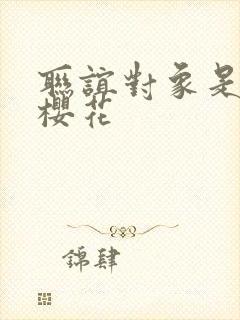 聯誼對象是
櫻花
錦肆